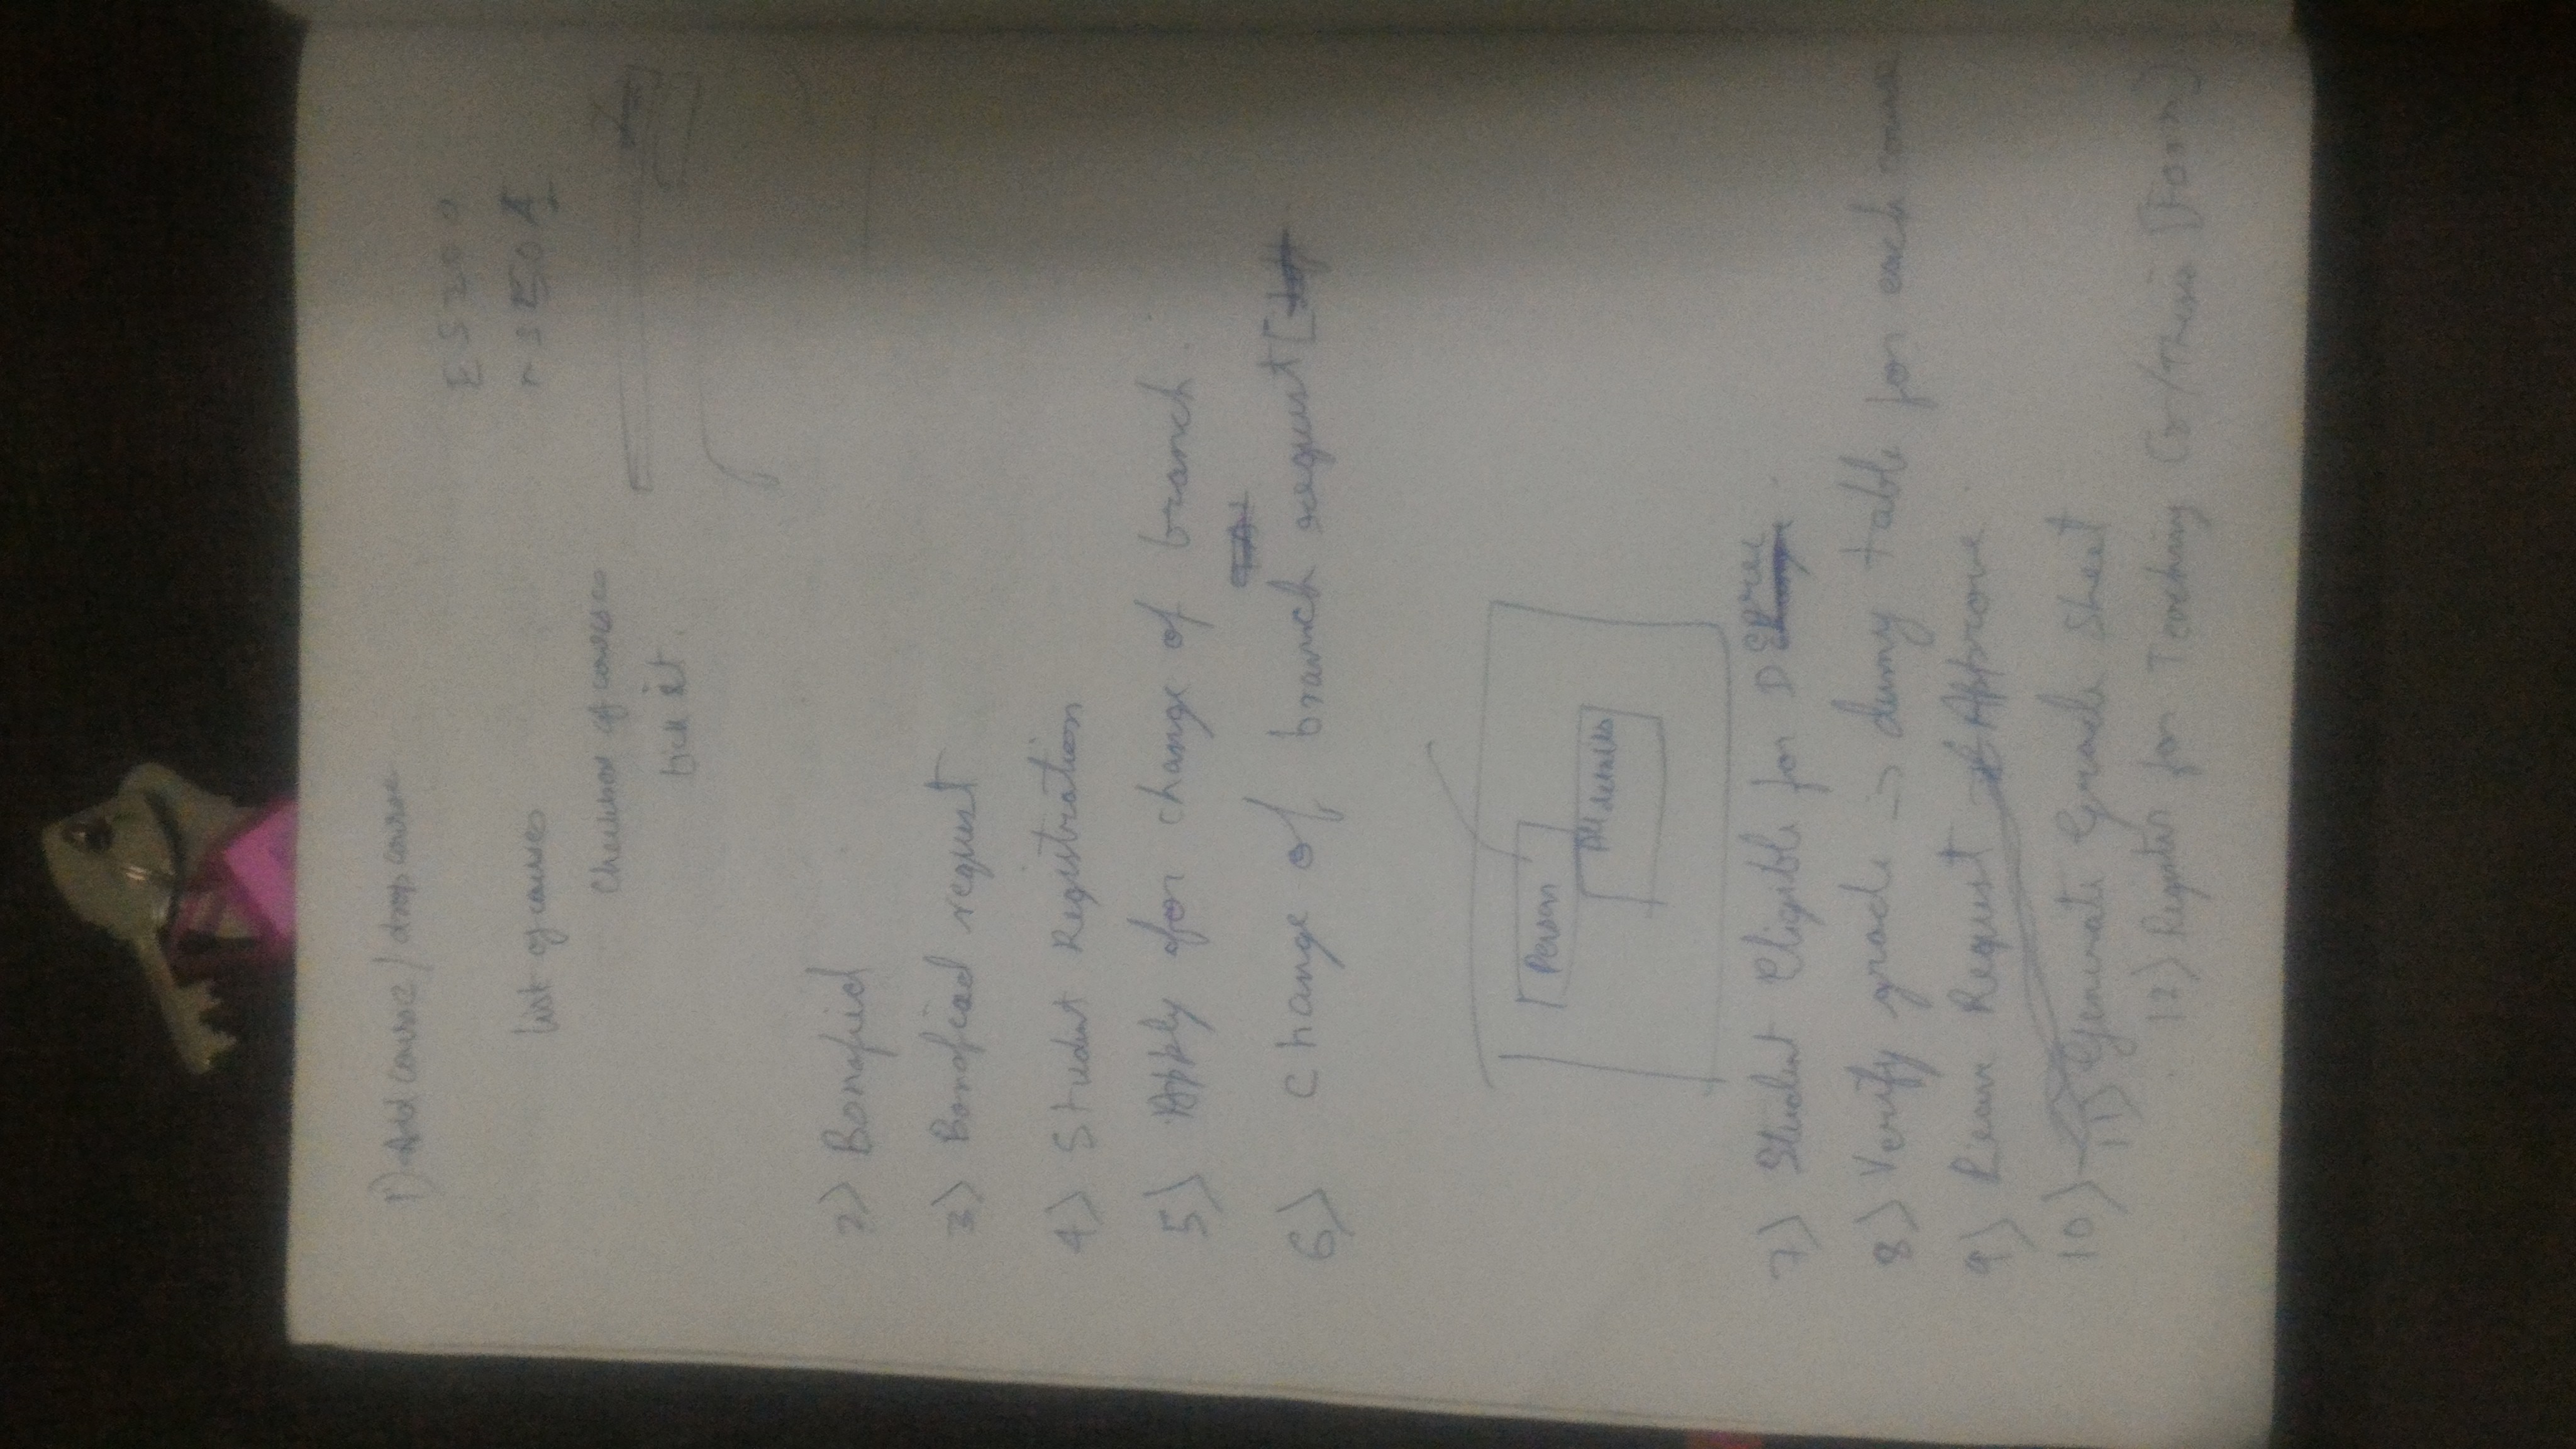 1) Add course / drop course
ES200
list of courses
Checkbox of courses
tick it.
2) Bonafied
3) Bonafied request
4) Student Registration
5) Apply for change of branch.
6) Change of branch request [
Person
All details
7) Student Eligible for D
8) Verify grade -> dumy table for each course
9) Leave Request Approve
10)
11) Generate Grade Sheet
12) Register for Teaching Cr/Thesis [Form]